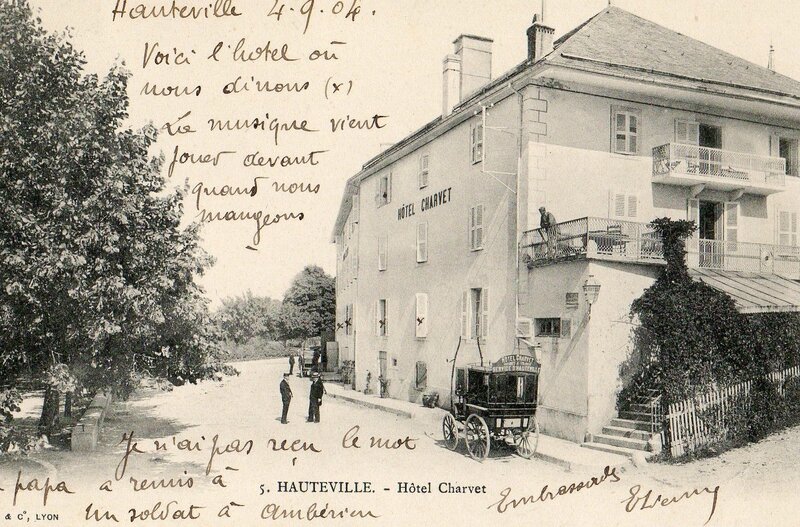 Hauteville 4.9.04.
Voici l'hotel où
nous dinons (x)
La musique vient
jouer devant
quand nous
mangeons
HÔTEL CHARVET
HÔTEL CHARVET
SERVICE D'HAUTEVILLE
Je n'ai pas reçu le mot
papa a remis à
un soldat à Ambérieu
5. HAUTEVILLE. - Hôtel Charvet
Embrassades
& Cº, LYON